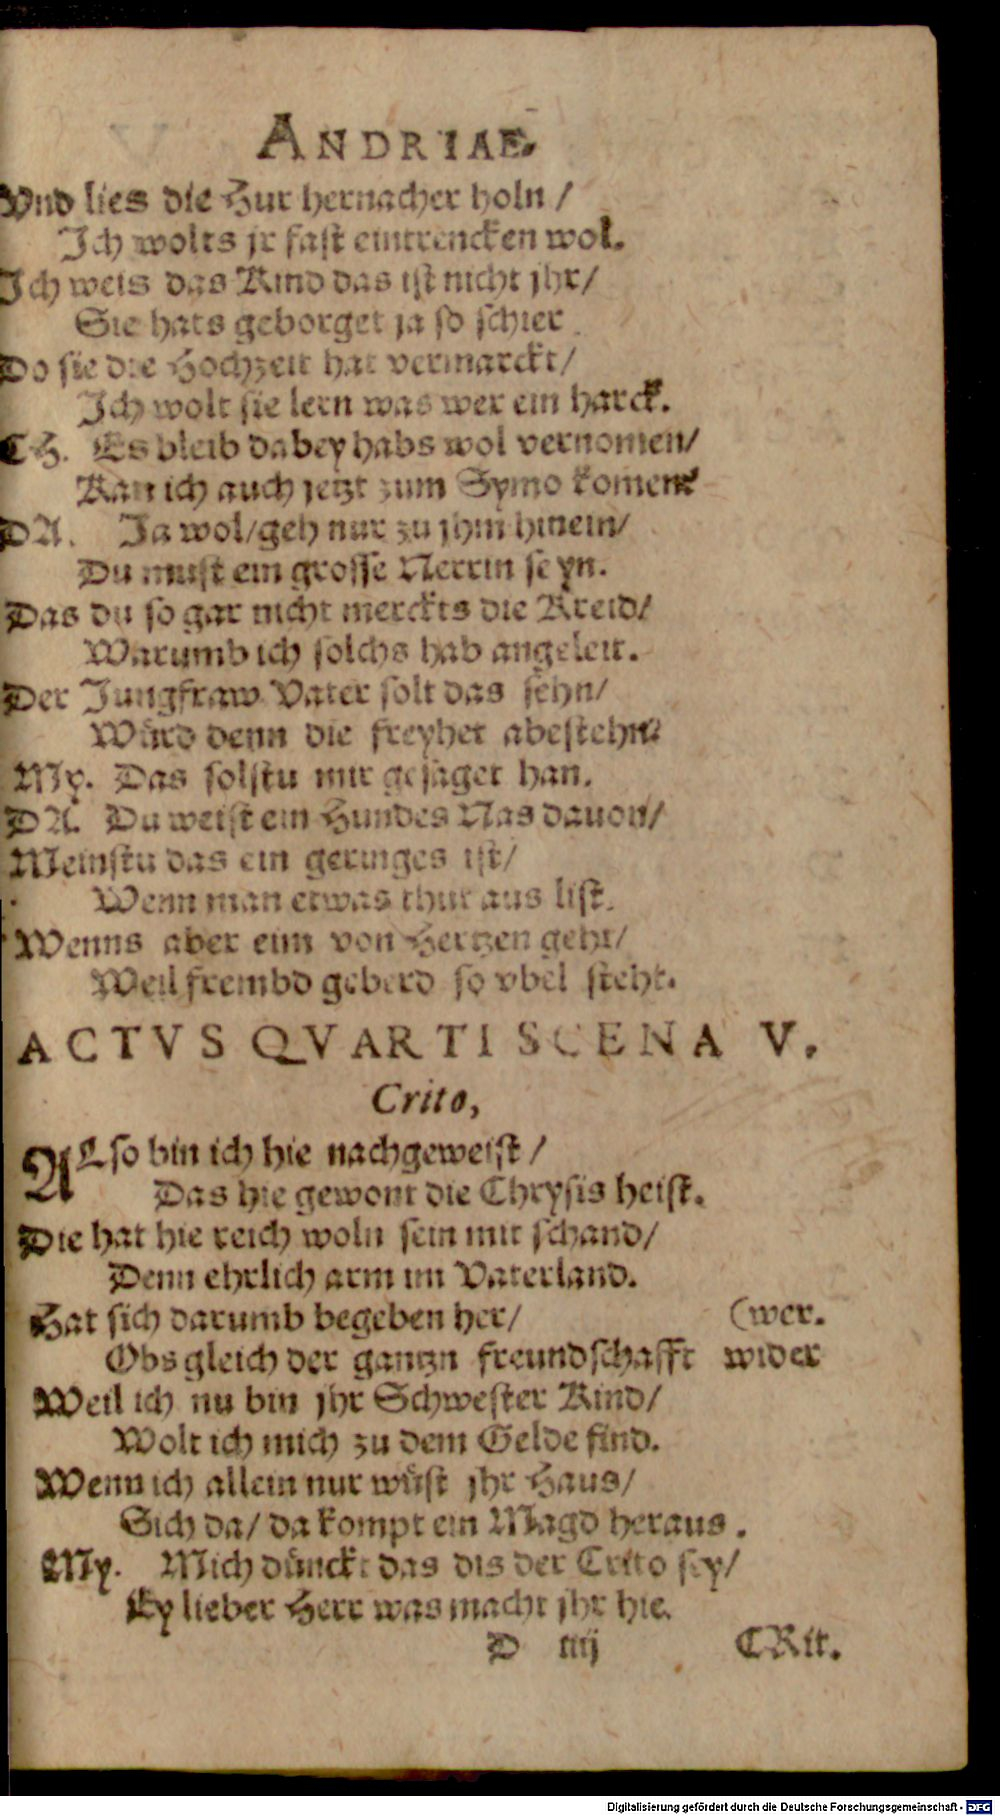 ANDRIAE.
Vnd lies die Hur hernacher holn /
Ich wolts jr fast eintrencken wol.
Ich weis das Kind das ist nicht jhr/
Sie hats geborget ja so schier
Do sie die Hochzeit hat vermarckt/
Ich wolt sie lern was wer ein harck.
CH. Es bleib dabey habs wol vernomen/
Kan ich auch jetzt zum Symo komen?
DA. Ja wol/geh nur zu jhm hinein/
Du must ein grosse Nerrin seyn.
Das du so gar nicht merckts die Kreid/
Warumb ich solchs hab angeleit.
Der Jungfraw Vater solt das sehn/
Würd denn die freyhet abestehn?
My. Das solstu mir gesaget han.
DA. Du weist ein Hundes Nas dauon/
Meinstu das ein geringes ist/
Wenn man etwas thut aus list.
Wenns aber eim von Hertzen geht/
Weil frembd geberd so vbel steht.
ACTVS QVARTI SCENA V.
Crito,
ALso bin ich hie nachgeweist /
Das hie gewont die Chrysis heist.
Die hat hie reich woln sein mit schand/
Denn ehrlich arm im Vaterland.
Hat sich darumb begeben her/ (wer.
Obs gleich der gantzn freundschafft wider
Weil ich nu bin jhr Schwester Kind/
Wolt ich mich zu dem Gelde find.
Wenn ich allein nur wüst jhr Haus/
Sich da/ da kompt ein Magd heraus.
My. Mich dünckt das dis der Crito sey/
Ey lieber Herr was macht jhr hie.
D iiij CRit.
Digitalisierung gefördert durch die Deutsche Forschungsgemeinschaft - DFG